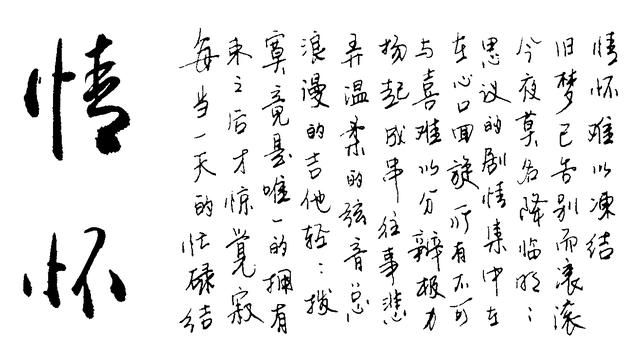 情怀
每当一天的忙碌结
束之后才惊觉寂
寞竟是唯一的拥有
浪漫的吉他轻：拨
弄温柔的弦音总
扬起成串往事悲
与喜难以分辨极力
在心口回旋所有不可
思议的剧情集中在
今夜莫名降临明：
旧梦已告别而滚滚
情怀难以冻结